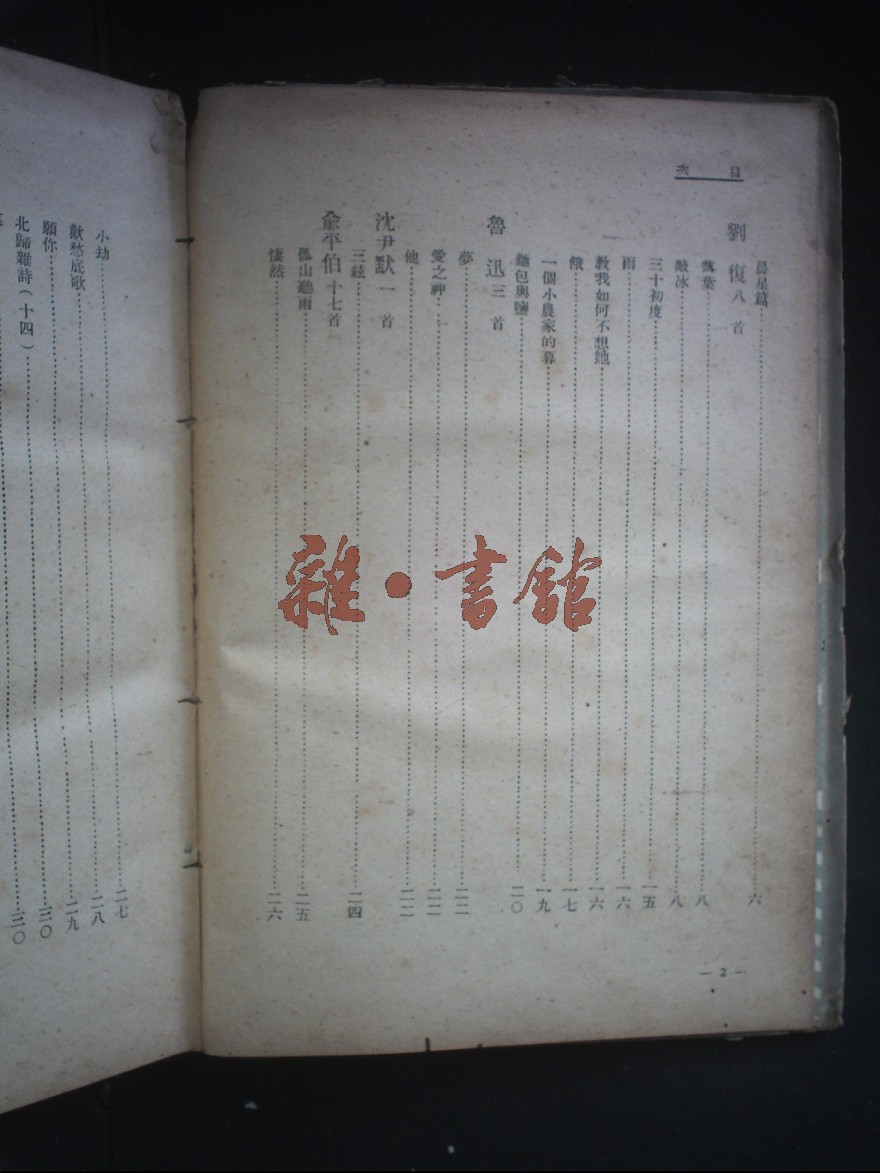 目次
晨星篇……六
劉復 八首
落葉……八
敲冰……八
三十初度……一五
雨……一六
教我如何不想她……一六
餓……一七
一個小農家的暮……一九
麵包與鹽……二〇
魯迅 三首
夢……二二
愛之神……二二
他……
沈尹默 一首
三絃……二四
俞平伯 十七首
孤山聽雨……二五
悽然……二六
— 2 —
小劫……二七
歡愁底歌……二八
願你……二九
北歸雜詩（十四）……三〇
……三〇
雜·書館